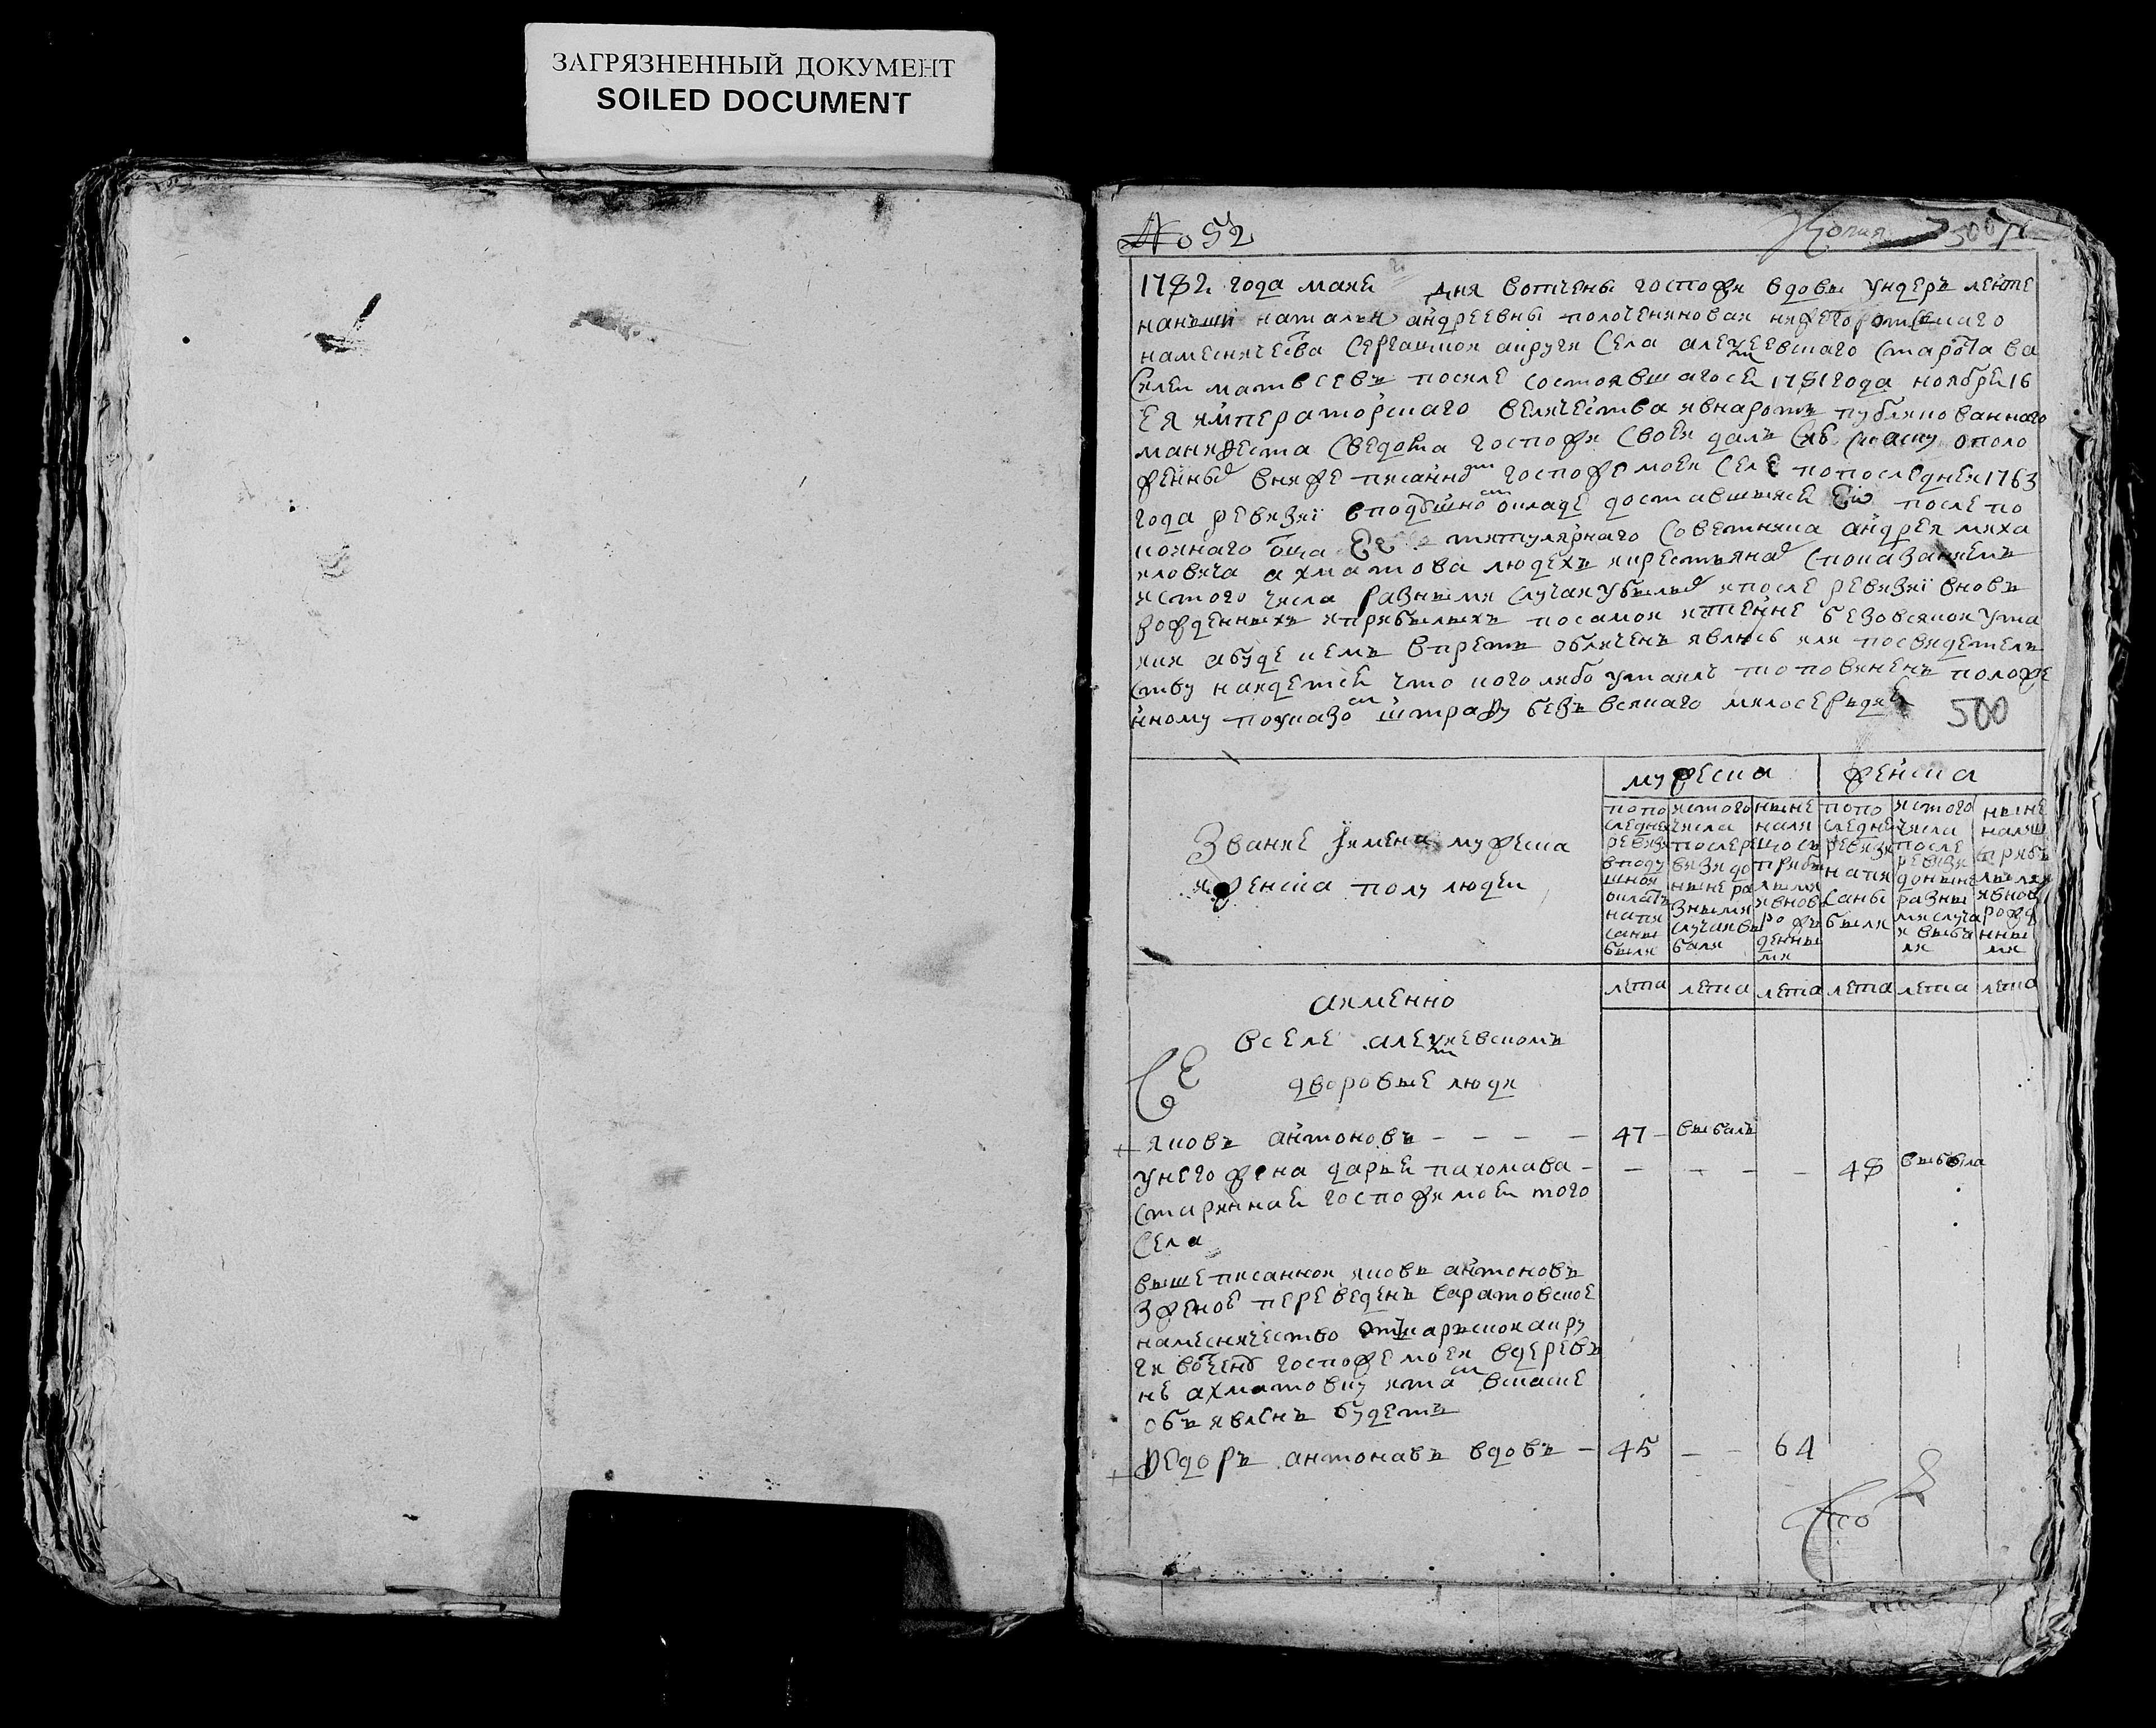 ЗАГРЯЗНЕННЫЙ ДОКУМЕНТ
SOILED DOCUMENT
№ 52
Копия
500
1782 года маия дня вотчены госпожи вдовы ундеръ лейте
нанши натальи андреевны полочениновая нижегоротскаго
наместничества сергацкой округи села алексеевскаго староста ва
силеи матвеевъ после состоявшагося 1781 года ноября 16
ея императорскаго величества и в народъ публикованнаго
манифеста сведома госпожи своей далъ сию скаску о поло
женныхъ в ниже писанномъ госпоже моей селе по последней 1763
года ревизии в подушномъ окладе доставшихся ей после по
койнаго отца ее титулярнаго советника андрея миха
иловича ахматова людехъ и крестьянахъ с показаниемъ
ис того числа разными случаи убылыхъ и после ревизии вновь
рожденныхъ и прибылыхъ по самой истенне безо всякой ута
ики а буде чемъ впреть обличенъ явлюсь или по свидетель
ству найдется что кого либо утаилъ то повиненъ положе
нному по указомъ штрафу безъ всякаго милосердия
500
мужеска женска
Звание и имена мужеска
и женска полу людей
по по следней ревизи в поду шной окладъ напи саны были
ис того числа после ре визи до ныне ра зными случаи вы были
ныне нали цо съ прибы лыми и вновь рож денны ми
по по следней ревизи напи саны были
ис того числа после ревизи до ныне разны ми случа и выбы ли
ныне налицо с прибы лыми и вновь рожде нны ми
лета лета лета лета лета лета
а имянно
в селе алексеевскомъ
дворовые люди
яковъ антоновъ - - - - 47 - выбылъ
у него жена дарья пахомава - - - - - 48 выбыла
старинная госпожи моей того
села
вышеписанной яковъ антоновъ
з женое переведенъ саратовское
наместничество аткарской окру
ги в вотчену госпоже моей в деревъ
не ахматовку и тамъ в скаске
объявленъ будетъ
Федоръ антонавъ вдовъ - 45 - - 64